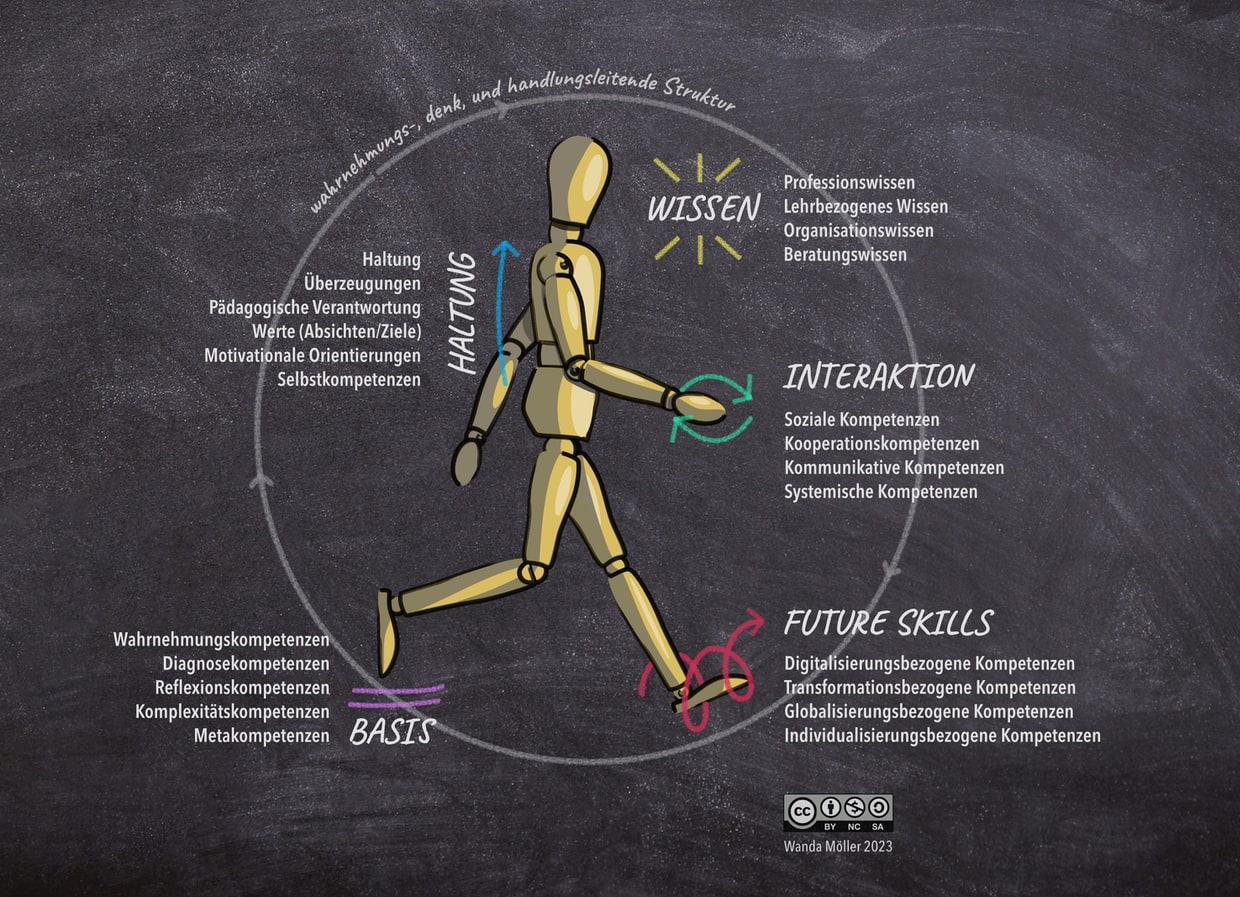 wahrnehmungs-, denk, und handlungsleitende Struktur
WISSEN
Professionswissen
Lehrbezogenes Wissen
Organisationswissen
Beratungswissen
HALTUNG
Haltung
Überzeugungen
Pädagogische Verantwortung
Werte (Absichten/Ziele)
Motivationale Orientierungen
Selbstkompetenzen
INTERAKTION
Soziale Kompetenzen
Kooperationskompetenzen
Kommunikative Kompetenzen
Systemische Kompetenzen
BASIS
Wahrnehmungskompetenzen
Diagnosekompetenzen
Reflexionskompetenzen
Komplexitätskompetenzen
Metakompetenzen
FUTURE SKILLS
Digitalisierungsbezogene Kompetenzen
Transformationsbezogene Kompetenzen
Globalisierungsbezogene Kompetenzen
Individualisierungsbezogene Kompetenzen
cc
BY NC SA
Wanda Möller 2023